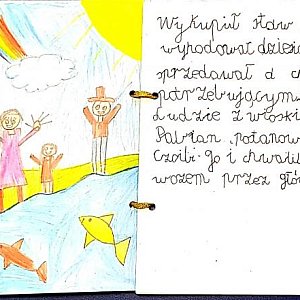 Wykupił staw
wyhodować dziecia
sprzedawał a ch
potrzebującym
Ludzie z wioski
Pabian, postanow
czcili go i chwalil
wozem przez głó